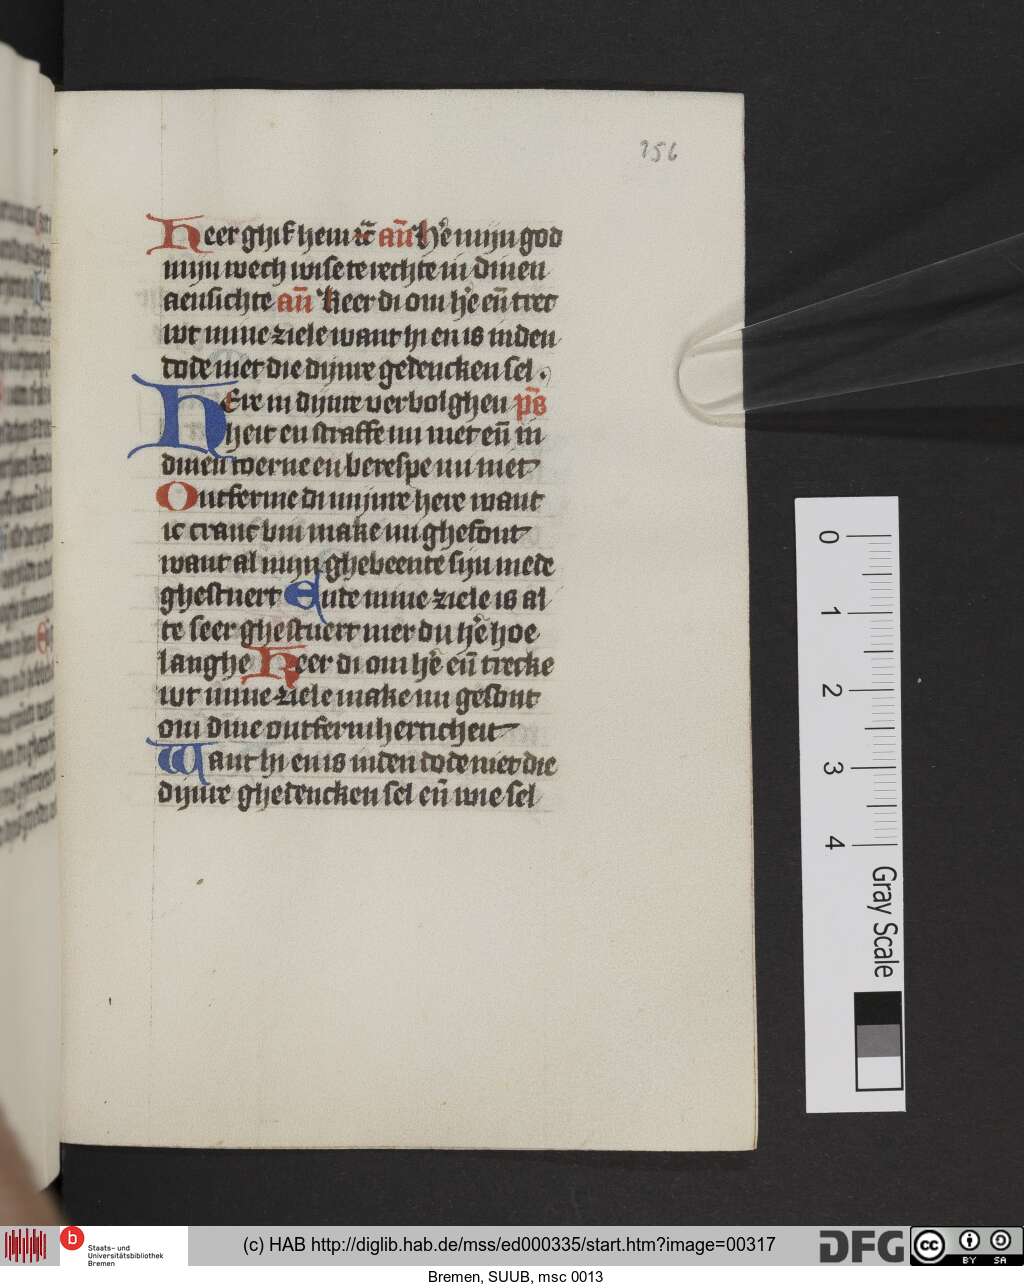 156
Heer ghif hem &c̄ an̄ he mijn god
mijn wech wise te rechte in dinen
aensichte an̄ Keer di om he en̄ trec
wt mine ziele want hi en is inden
dode niet die dijnre gedencken sel .
HEre in dijnre verbolghen ps̄
heit en straffe mi niet en̄ in
dinen toerne en berespe mi niet
Ontferme di mijnre here want
ic cranc bin make mi ghesont
want al mijn ghebeente sijn mede
ghestuert Ende mine ziele is al
te seer ghestuert mer du he hoe
langhe Keer di om he en̄ trecke
wt mine ziele make mi gesont
om dine ontfermherticheit
Want hi en is inden dode niet die
dijnre ghedencken sel en̄ wie sel
0
1
2
3
4
Gray Scale
b
Staats- und
Universitätsbibliothek
Bremen
(c) HAB http://diglib.hab.de/mss/ed000335/start.htm?image=00317
DFG
cc
BY SA
Bremen, SUUB, msc 0013